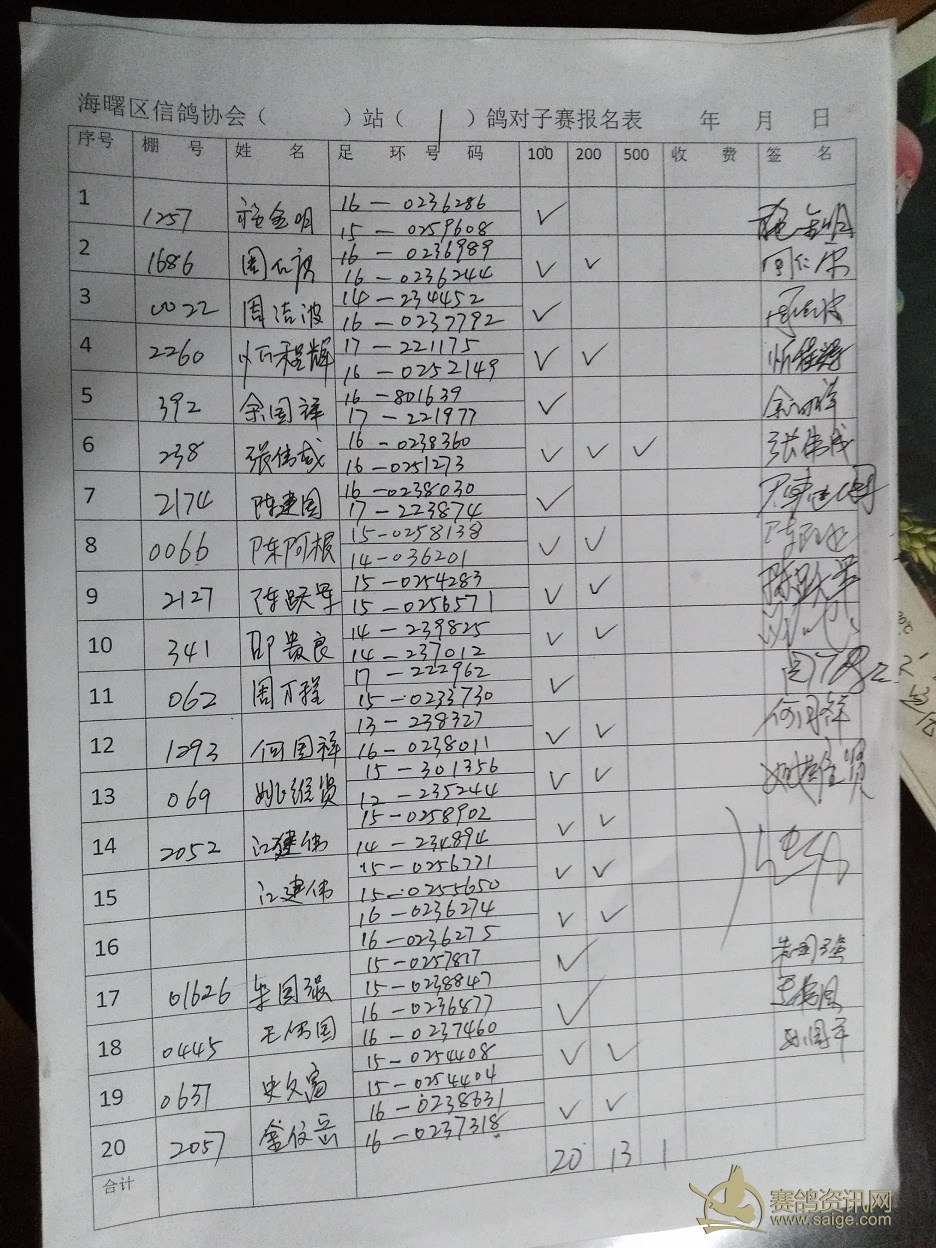 海曙区信鸽协会（ ）站（ ）鸽对子赛报名表 年 月 日
序号 棚 号 姓 名 足 环 号 码 100 200 500 收 费 签 名
1 1257 施金明 16-0236286 ✓ 施金明
15-0259608
2 1686 周仁 16-0236989 ✓ ✓ 周仁
16-0236244
3 0022 周洁波 14-234452 ✓ 周洁波
16-0237792
4 2260 忻程辉 17-221175 ✓ ✓ 忻程辉
16-0252149
5 392 余国祥 16-801639 ✓ 余国祥
17-221977
6 238 张伟成 16-0238360 ✓ ✓ ✓ 张伟成
16-0251273
7 2174 陈建国 16-0238030 ✓ 陈建国
17-223874
8 0066 陈阿根 15-0258138 ✓ ✓
14-036201
9 2127 陈跃军 15-0254283 ✓ ✓ 陈跃军
15-0256571
10 341 邵贵良 14-239825 ✓ ✓
14-237012
11 062 周万程 17-222962 ✓
15-0233730
12 1293 何国祥 13-238327 ✓ ✓ 何国祥
16-0238011
13 069 姚维贤 15-301356 ✓ ✓ 姚维贤
12-235244
14 2052 江建伟 15-0258902 ✓ ✓
14-234894
15 江建伟 15-0256771 ✓ ✓
15-0255650
16 16-0236274 ✓ ✓
16-0236275
17 01626 朱国强 15-0257817 ✓ 朱国强
15-0238847
18 0445 王伟国 16-0236877 ✓
16-0237460
19 0637 史久富 15-0254408 ✓ ✓
15-0254404
20 2057 金仪岳 16-0238631 ✓ ✓
16-0237318
合计 20 13 1
赛鸽资讯网
www.saige.com